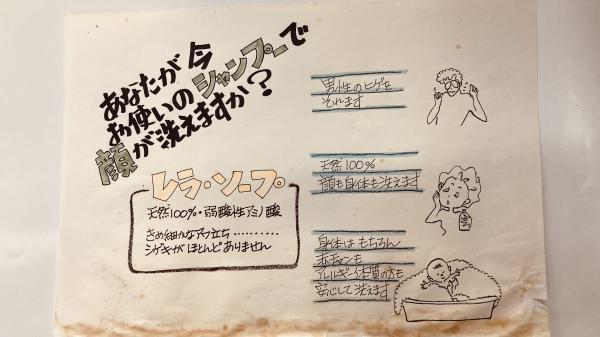 あなたが今
お使いのシャンプーで
顔が洗えますか?
レラ・ソープ
天然100%・弱酸性アミノ酸
きめ細かなアワ立ち………
シゲキがほとんどありません
男性のヒゲも
それます
天然100%
顔も身体も洗えます
身体はもちろん
赤チャンも
アレルギー体質の方も
安心して洗えます